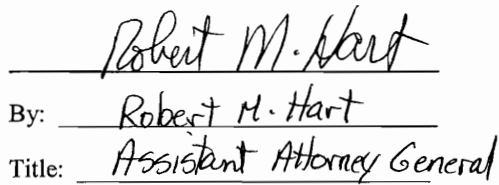 Robert M. Hart
By: Robert M. Hart
Title: Assistant Attorney General